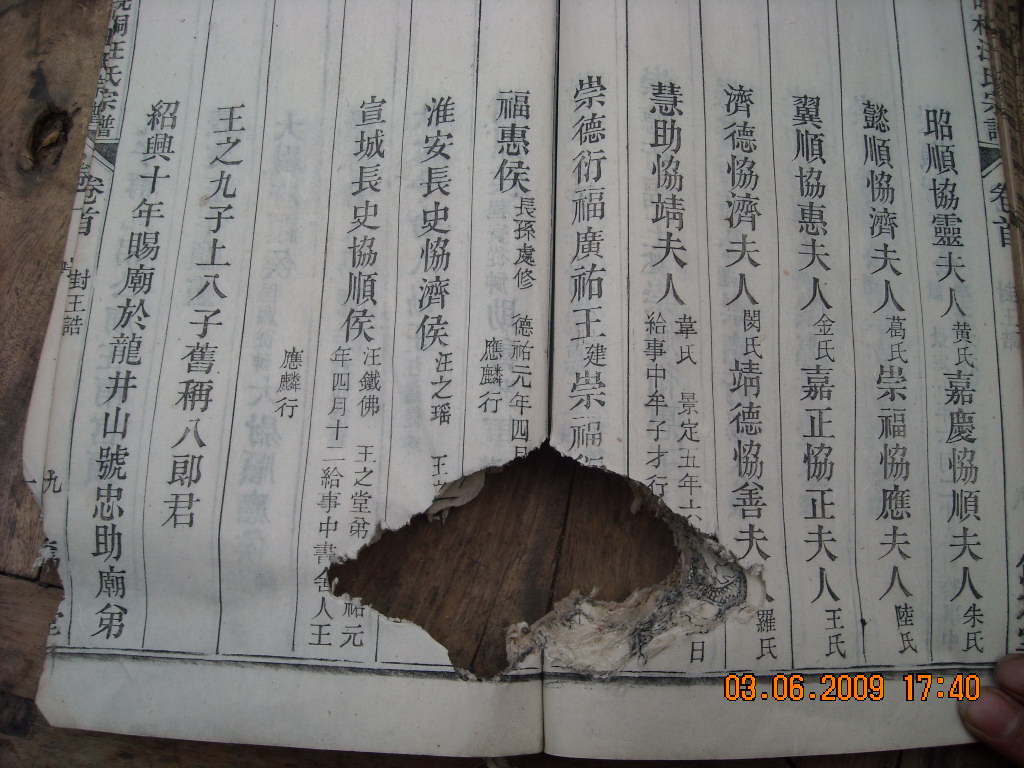 汪氏宗譜
卷首
昭順協靈夫人黄氏嘉慶協順夫人朱氏
懿順協濟夫人葛氏崇福協應夫人陸氏
翼順協惠夫人金氏嘉正協正夫人王氏
濟德協濟夫人閔氏靖德協善夫人羅氏
慧助協靖夫人韋氏 景定五年
給事中牟子才行 日
崇德衍福廣祐王建崇福
福惠侯長孫處修 德祐元年四月
應麟行
淮安長史協濟侯汪之瑶 王
宣城長史協順侯汪鐵佛 王之堂弟 祐元
年四月十二給事中書舍人王
應麟行
王之九子上八子舊稱八郎君
紹興十年賜廟於龍井山號忠助廟弟
汪氏宗譜
卷首
封王誥
九
03.06.2009 17:40